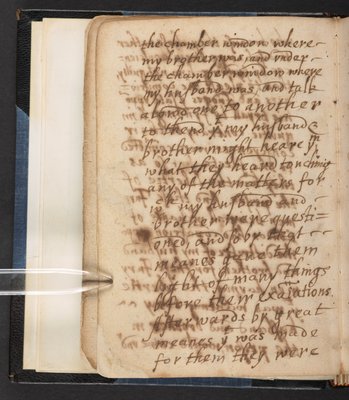 the chamber window where
my brother was, and vnder
the chamber window where
my husband was, and talk
alowd one to another
to thend yt my husband &
brother might heare
what they heard touching
any of the matters for
wch my husband and
brother were questi=
oned, and so by that
meanes gave them
light of many things
before them examations.
After wards by great
meanes yt was made
for them they were